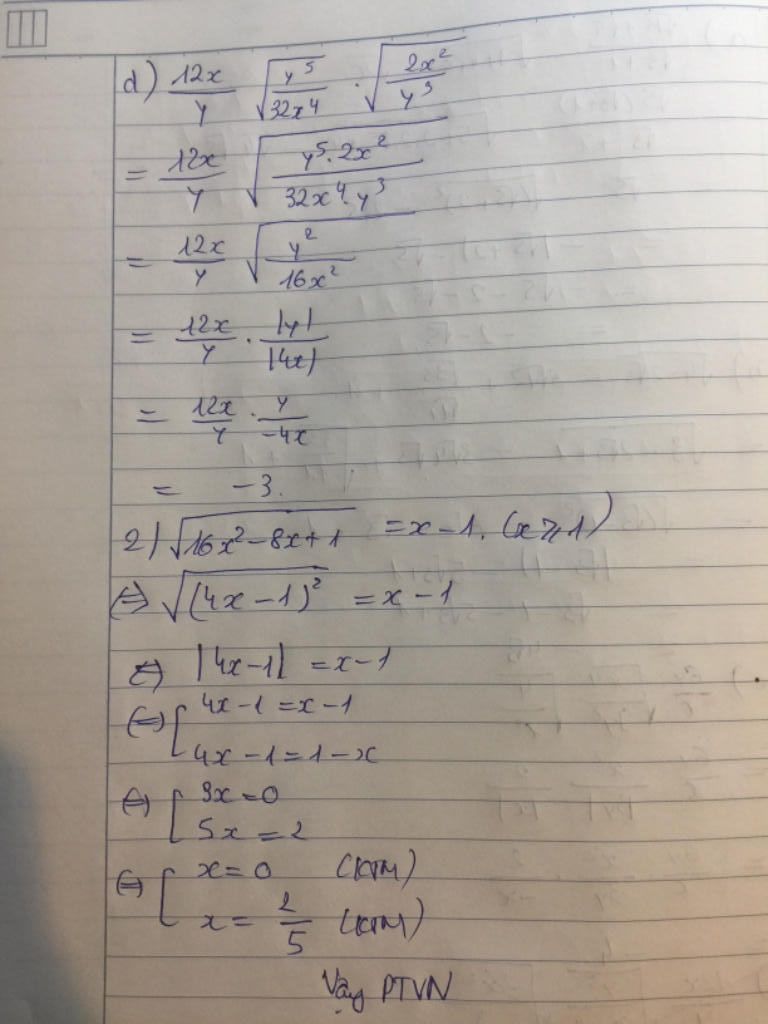 d) 12x/y √(y⁵/32x⁴) · √(2x²/y³)
= 12x/y √(y⁵·2x²/32x⁴·y³)
= 12x/y √(y²/16x²)
= 12x/y · |y|/|4x|
= 12x/y · y/-4x
= -3.
2) √(16x²-8x+1) = x-1. (x⩾1)
(=) √((4x-1)²) = x-1
(=) |4x-1| = x-1
(=) [ 4x-1 = x-1
4x-1 = 1-x
(=) [ 3x = 0
5x = 2
(=) [ x = 0 (KTM)
x = 2/5 (KTM)
Vậy PTVN